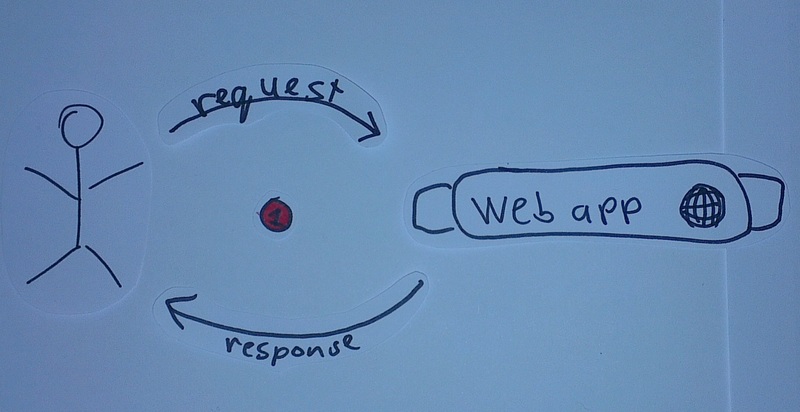 request
1
Web app
response